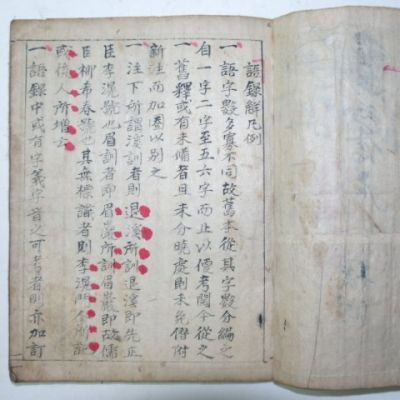 語錄解凡例
一語字數多寡不同故舊本從其字數分編之
自一字二字至五六字而止以便考閱今從之
一舊釋或有未備者且未分曉處則未免僭附
新注而加圈以別之
一注下所謂溪訓者則退溪所訓退溪即先正
臣李滉號也眉訓者即眉巖所訓眉巖即故儒
臣柳希春號也其無標識者則李滉門人所記
或後人所增云
一語錄中或有字義字音之可考者則亦加訂